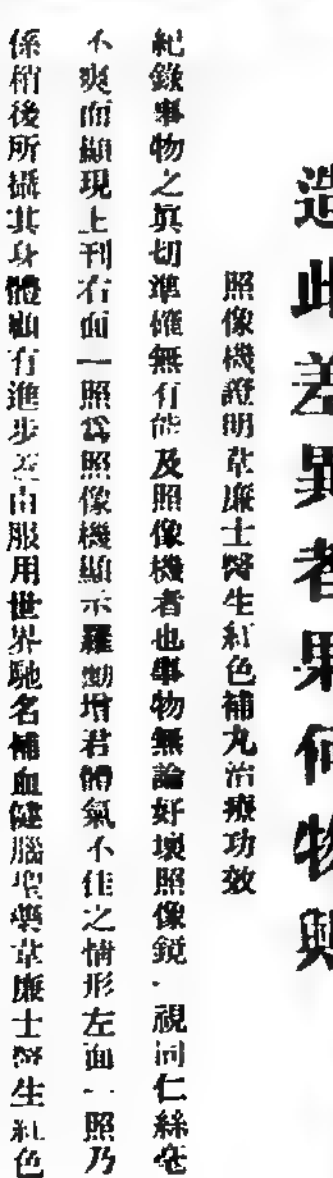 造此差異者果何物歟
照像機證明韋廉士醫生紅色補丸治療功效
紀錄事物之眞切準確無有能及照像機者也事物無論好壞照像鏡一視同仁絲毫
不爽而顯現上刊右面一照爲照像機顯示羅勳增君體氣不佳之情形左面一照乃
係稍後所攝其身體有進步之由服用世界馳名補血健腦聖藥韋廉士醫生紅色